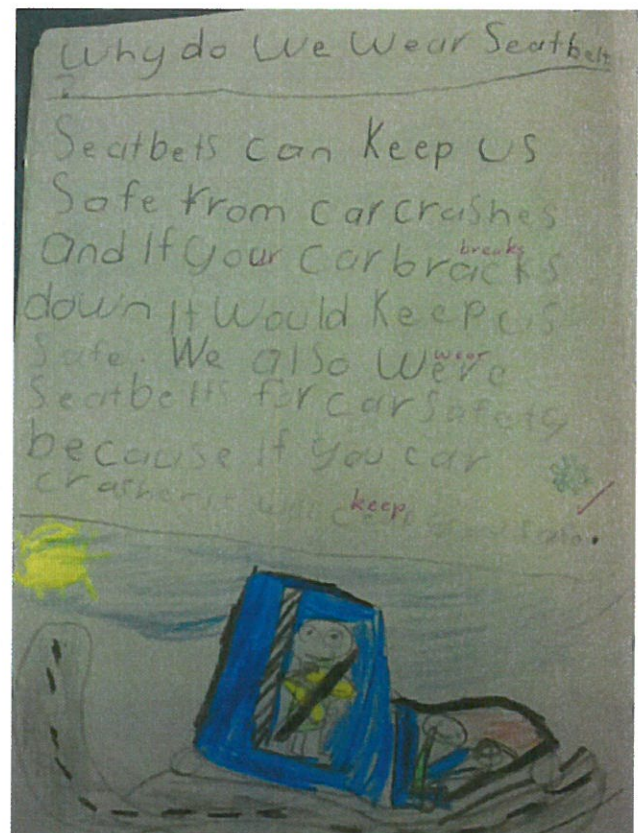 Why do We Wear Seatbelt
?
Seatbets can Keep us
Safe from car crashes
And If your car bracks
breaks
down It Would Keep us
Safe. We also Were
wear
Seatbelts for car Safety
because If you car
keep